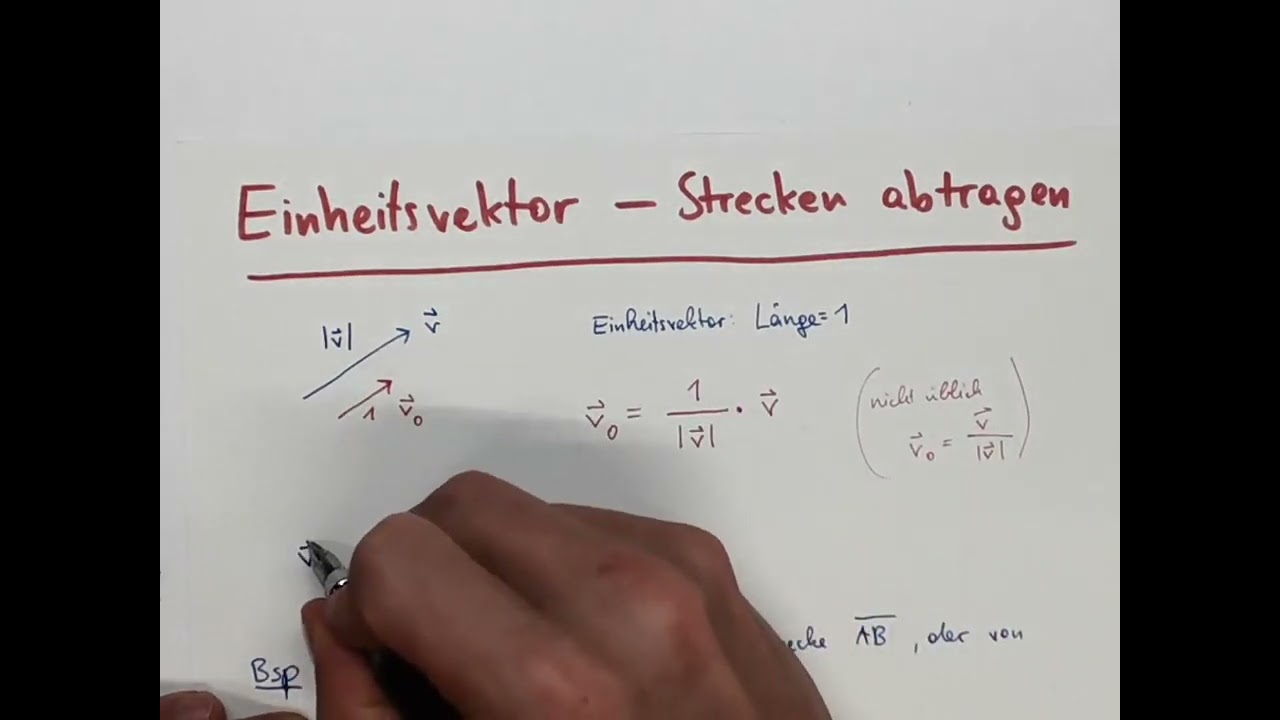 Einheitsvektor – Strecken abtragen
|v⃗| v⃗
1 v⃗₀
Einheitsvektor: Länge = 1
v⃗₀ = 1/|v⃗| · v⃗
(nicht üblich
v⃗₀ = v⃗/|v⃗|)
v⃗
Bsp
A̅B̅, der von